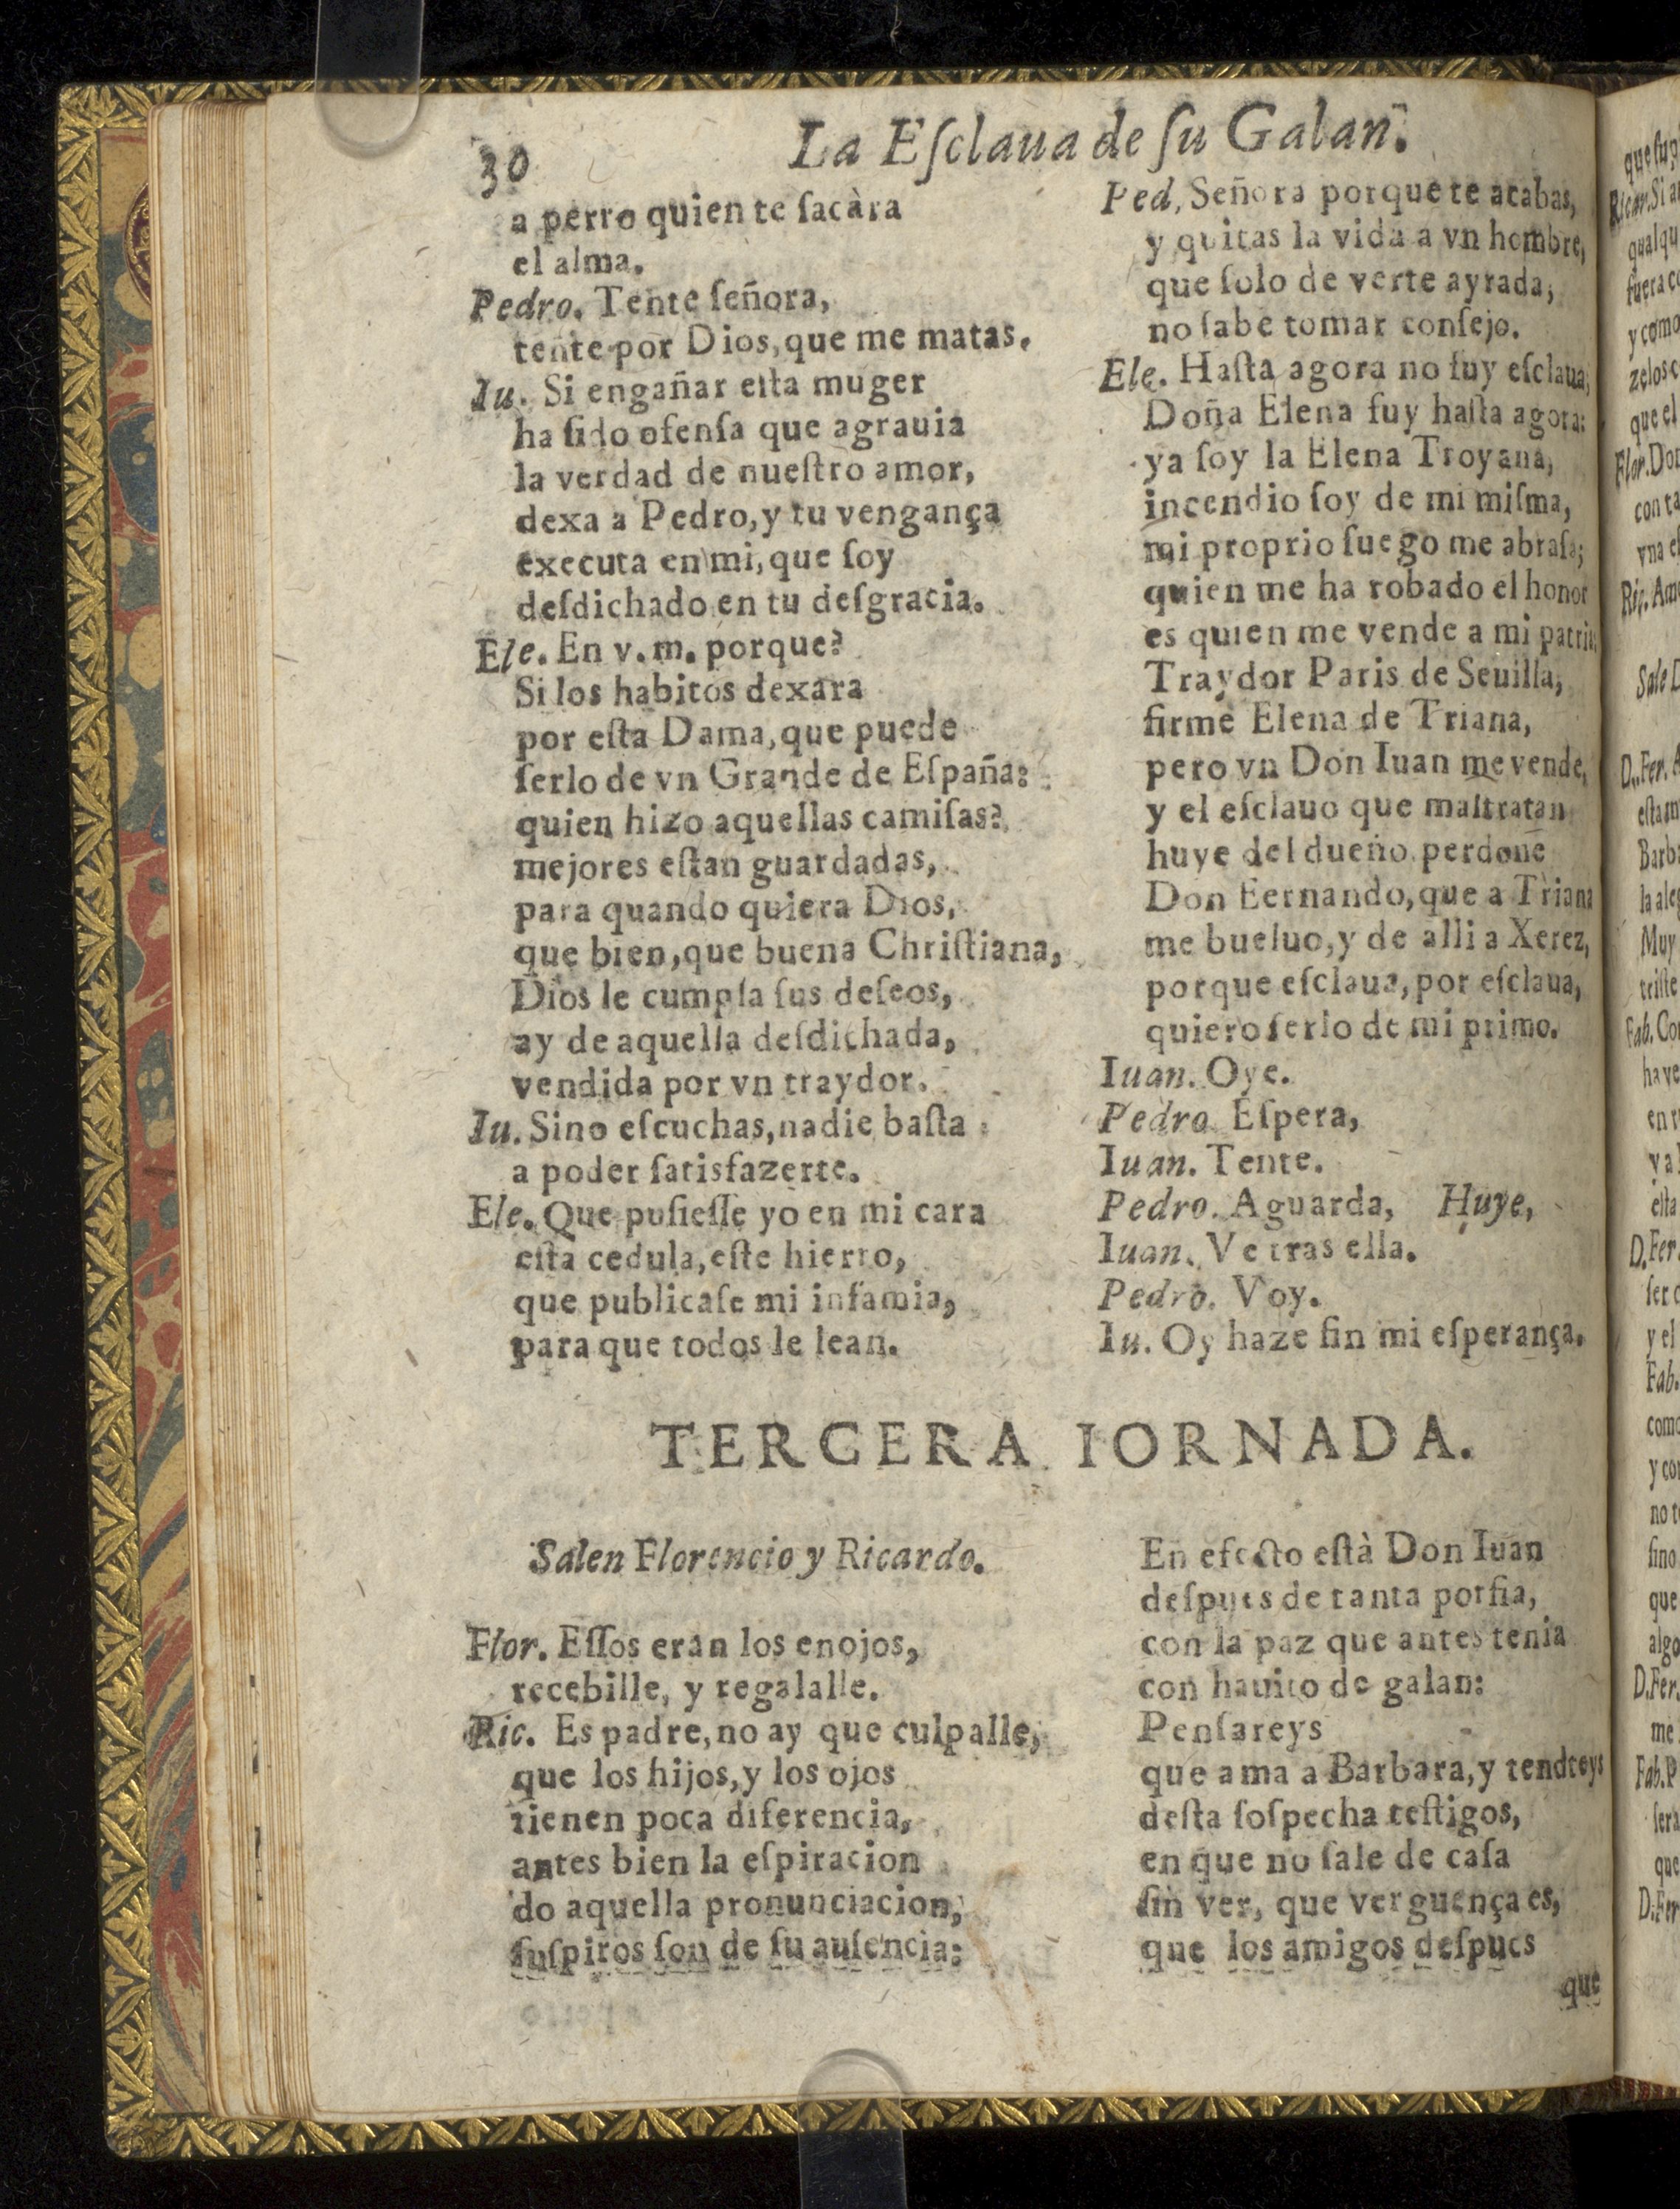 30
La Eſclaua de ſu Galan.
a perro quien te ſacàra
el alma.
Pedro. Tente ſeñora,
tente por Dios, que me matas.
Iu. Si engañar eſta muger
ha ſido ofenſa que agrauia
la verdad de nueſtro amor,
dexa a Pedro, y tu vengança
executa en mi, que ſoy
deſdichado en tu deſgracia.
Ele. En v. m. porque?
Si los habitos dexàra
por eſta Dama, que puede
ſerlo de vn Grande de Eſpaña:
quien hizo aquellas camiſas?
mejores eſtan guardadas,
para quando quiera Dios,
que bien, que buena Chriſtiana,
Dios le cumpla ſus deſeos,
ay de aquella deſdichada,
vendida por vn traydor.
Iu. Sino eſcuchas, nadie baſta
a poder ſatisfazerte.
Ele. Que puſieſſe yo en mi cara
eſta cedula, eſte hierro,
que publicaſe mi infamia,
para que todos le lean.
Ped. Señora porque te acabas,
y quitas la vida a vn hombre,
que ſolo de verte ayrada,
no ſabe tomar conſejo.
Ele. Haſta agora no fuy eſclaua,
Doña Elena fuy haſta agora:
ya ſoy la Elena Troyana,
incendio ſoy de mi miſma,
mi proprio fuego me abraſa;
quien me ha robado el honor
es quien me vende a mi patria,
Traydor Paris de Seuilla,
firme Elena de Triana,
pero vn Don Iuan me vende,
y el eſclauo que maltratan
huye del dueño. perdone
Don Fernando, que a Triana
me bueluo, y de alli a Xerez,
porque eſclaua, por eſclaua,
quiero ſerlo de mi primo.
Iuan. Oye.
Pedro. Eſpera,
Iuan. Tente.
Pedro. Aguarda, Huye,
Iuan. Ve tras ella.
Pedro. Voy.
Iu. Oy haze fin mi eſperança.
TERCERA IORNADA.
Salen Florencio y Ricardo.
Flor. Eſſos eran los enojos,
recebille, y regalalle.
Ric. Es padre, no ay que culpalle,
que los hijos, y los ojos
tienen poca diferencia,
antes bien la eſpiracion
do aquella pronunciacion,
ſuſpiros ſon de ſu auſencia:
En efecto eſtà Don Iuan
deſpues de tanta porfia,
con la paz que antes tenia
con hauito de galan:
Penſareys
que ama a Barbara, y tendreys
deſta ſoſpecha teſtigos,
en que no ſale de caſa
ſin ver, que verguença es,
que los amigos deſpues
que